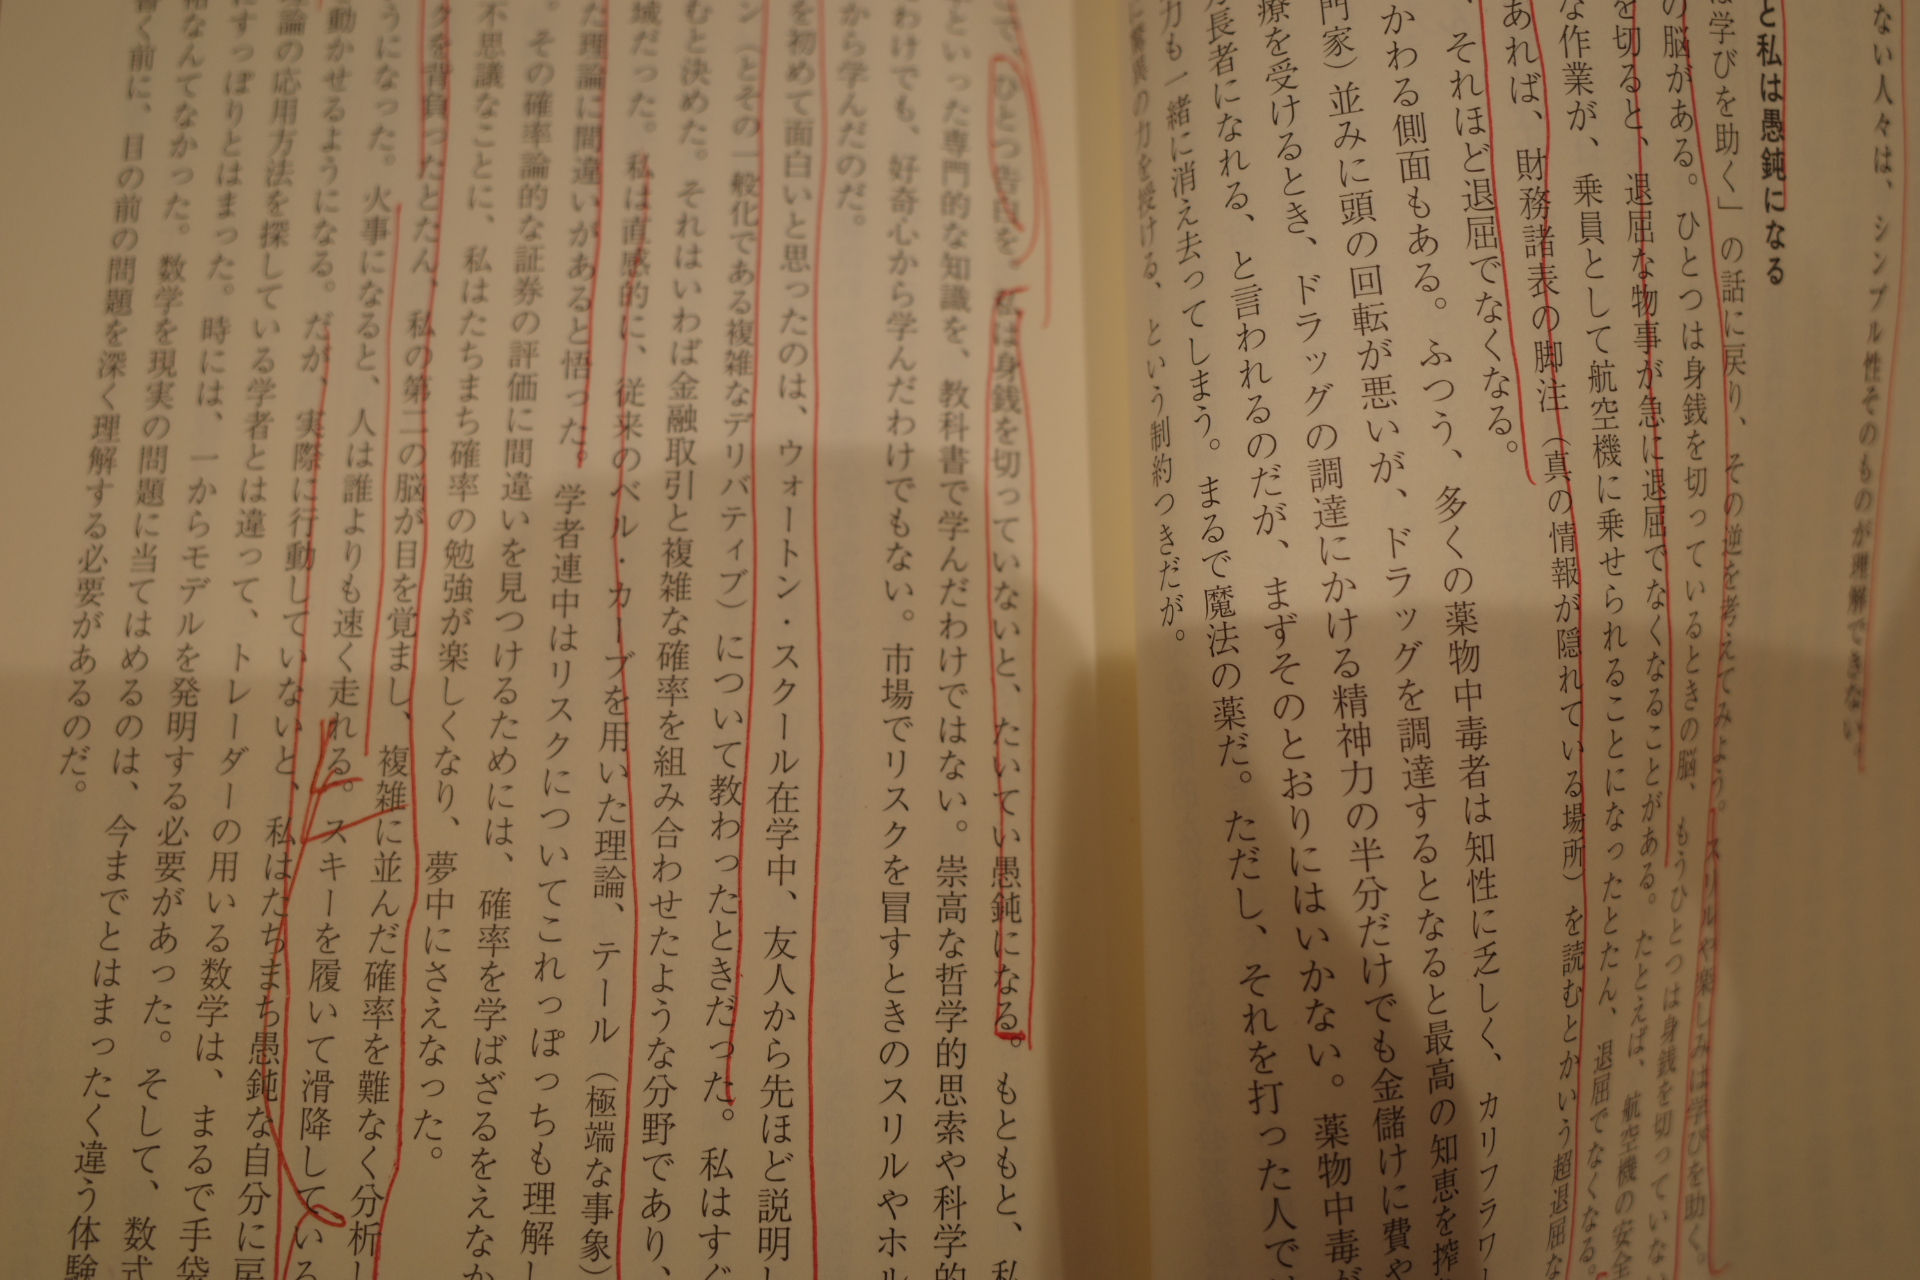 ない人々は、シンプル性そのものが理解できない。
と私は愚鈍になる
は学びを助く」の話に戻り、その逆を考えてみよう。スリルや楽しみは学びを助く。
の脳がある。ひとつは身銭を切っているときの脳、もうひとつは身銭を切っていない
を切ると、退屈な物事が急に退屈でなくなることがある。たとえば、航空機の安全
な作業が、乗員として航空機に乗せられることになったとたん、退屈でなくなる。
あれば、財務諸表の脚注（真の情報が隠れている場所）を読むとかいう超退屈な
、それほど退屈でなくなる。
かわる側面もある。ふつう、多くの薬物中毒者は知性に乏しく、カリフラワー
門家）並みに頭の回転が悪いが、ドラッグを調達するとなると最高の知恵を搾
療を受けるとき、ドラッグの調達にかける精神力の半分だけでも金儲けに費や
長者になれる、と言われるのだが、まずそのとおりにはいかない。薬物中毒が
力も一緒に消え去ってしまう。まるで魔法の薬だ。ただし、それを打った人で
の力を授ける、という制約つきだが。
で、ひとつ告白を。私は身銭を切っていないと、たいてい愚鈍になる。もともと、私
といった専門的な知識を、教科書で学んだわけではない。崇高な哲学的思索や科学的
わけでも、好奇心から学んだわけでもない。市場でリスクを冒すときのスリルやホル
から学んだのだ。
を初めて面白いと思ったのは、ウォートン・スクール在学中、友人から先ほど説明し
ン（とその一般化である複雑なデリバティブ）について教わったときだった。私はすぐ
むと決めた。それはいわば金融取引と複雑な確率を組み合わせたような分野であり、
域だった。私は直感的に、従来のベル・カーブを用いた理論、テール（極端な事象）
た理論に間違いがあると悟った。学者連中はリスクについてこれっぽっちも理解し
。その確率論的な証券の評価に間違いを見つけるためには、確率を学ばざるをえなか
不思議なことに、私はたちまち確率の勉強が楽しくなり、夢中にさえなった。
クを背負ったとたん、私の第二の脳が目を覚まし、複雑に並んだ確率を難なく分析し
うになった。火事になると、人は誰よりも速く走れる。スキーを履いて滑降している
動かせるようになる。だが、実際に行動していないと、私はたちまち愚鈍な自分に戻
理論の応用方法を探している学者とは違って、トレーダーの用いる数学は、まるで手袋
にすっぽりとはまった。時には、一からモデルを発明する必要があった。そして、数式
裕なんてなかった。数学を現実の問題に当てはめるのは、今までとはまったく違う体験
書く前に、目の前の問題を深く理解する必要があるのだ。